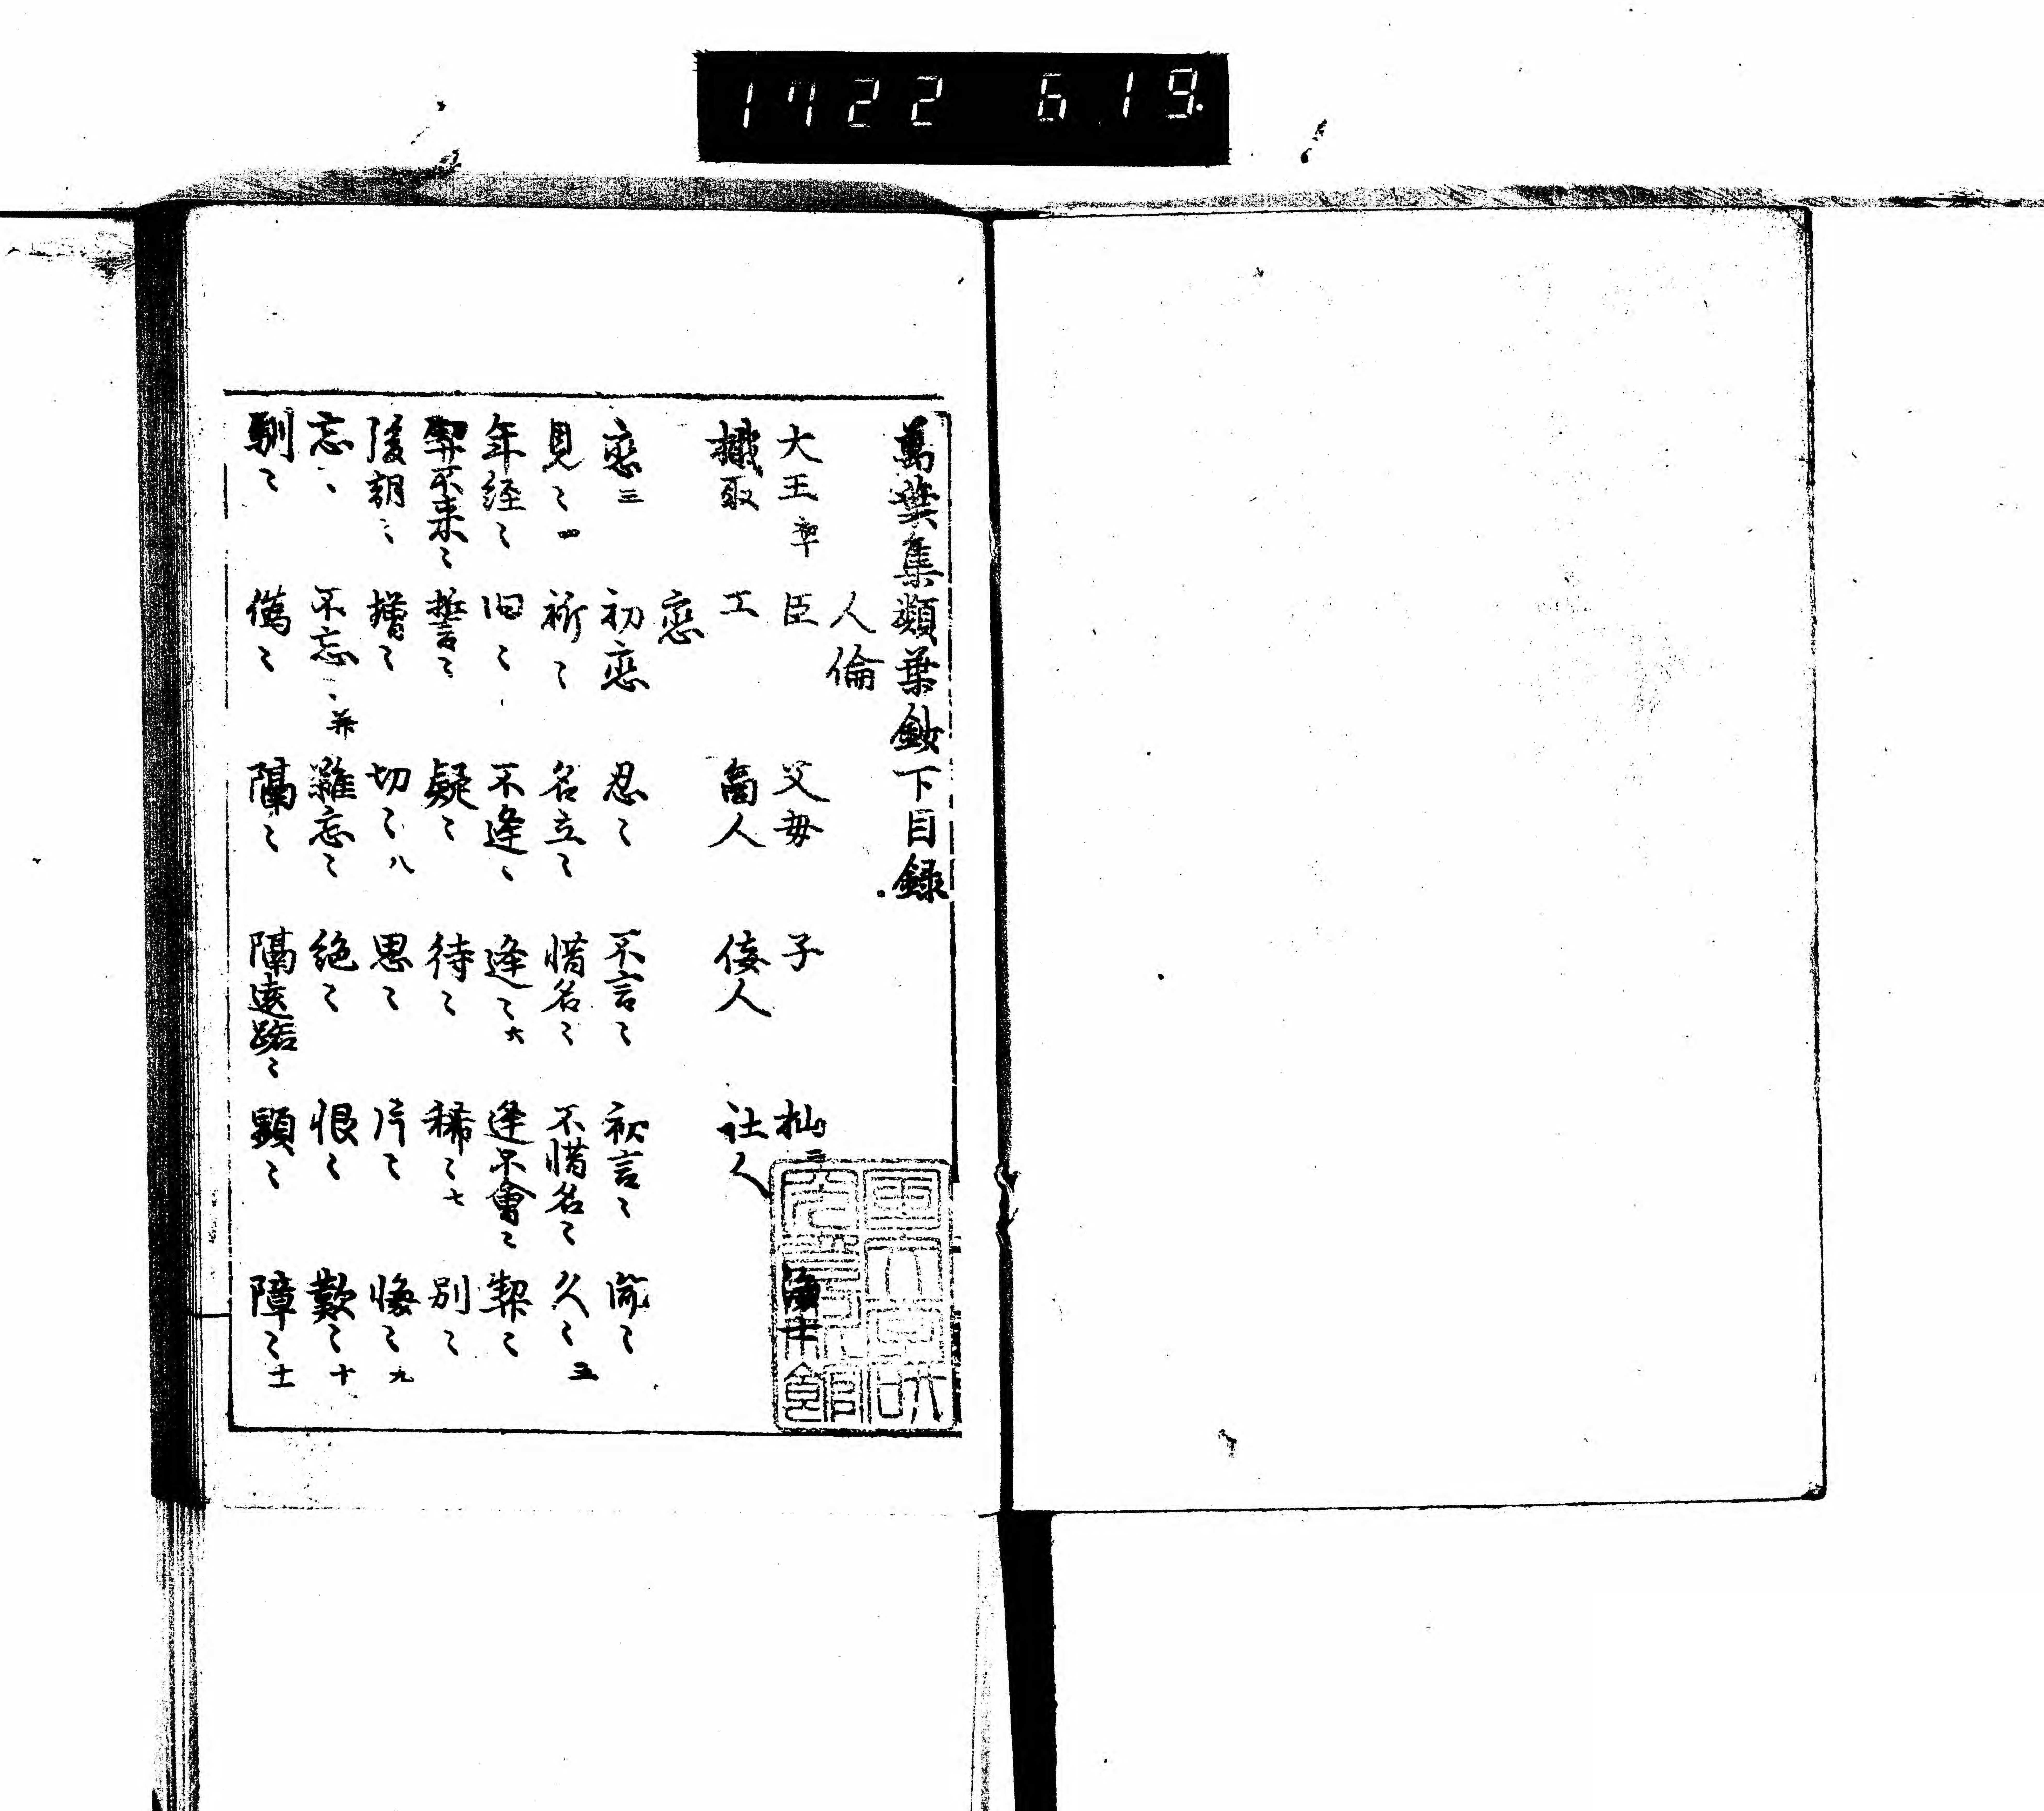 1722 6 19.
萬葉集類葉鈔下目録
人倫
大王 章 臣 父毋 子 杣三 漁
樵取 工 商人 倭人 社人
恋
恋三 初恋 忍〻 不言〻 初言〻
見〻四 祈〻 名立〻 惜名〻 不惜名〻 久〻五
年経〻 旧〻 不逢〻 逢〻六 逢不會〻 契〻
契不来〻 誓〻 疑〻 待〻 稀〻七 別〻
後朝〻 增〻 切〻八 思〻 片〻 悔〻九
忘〻 不忘〻并 難忘〻 絶〻 恨〻 歎〻十
馴〻 僞〻 隔〻 隔遠路〻 顕〻 障〻十一